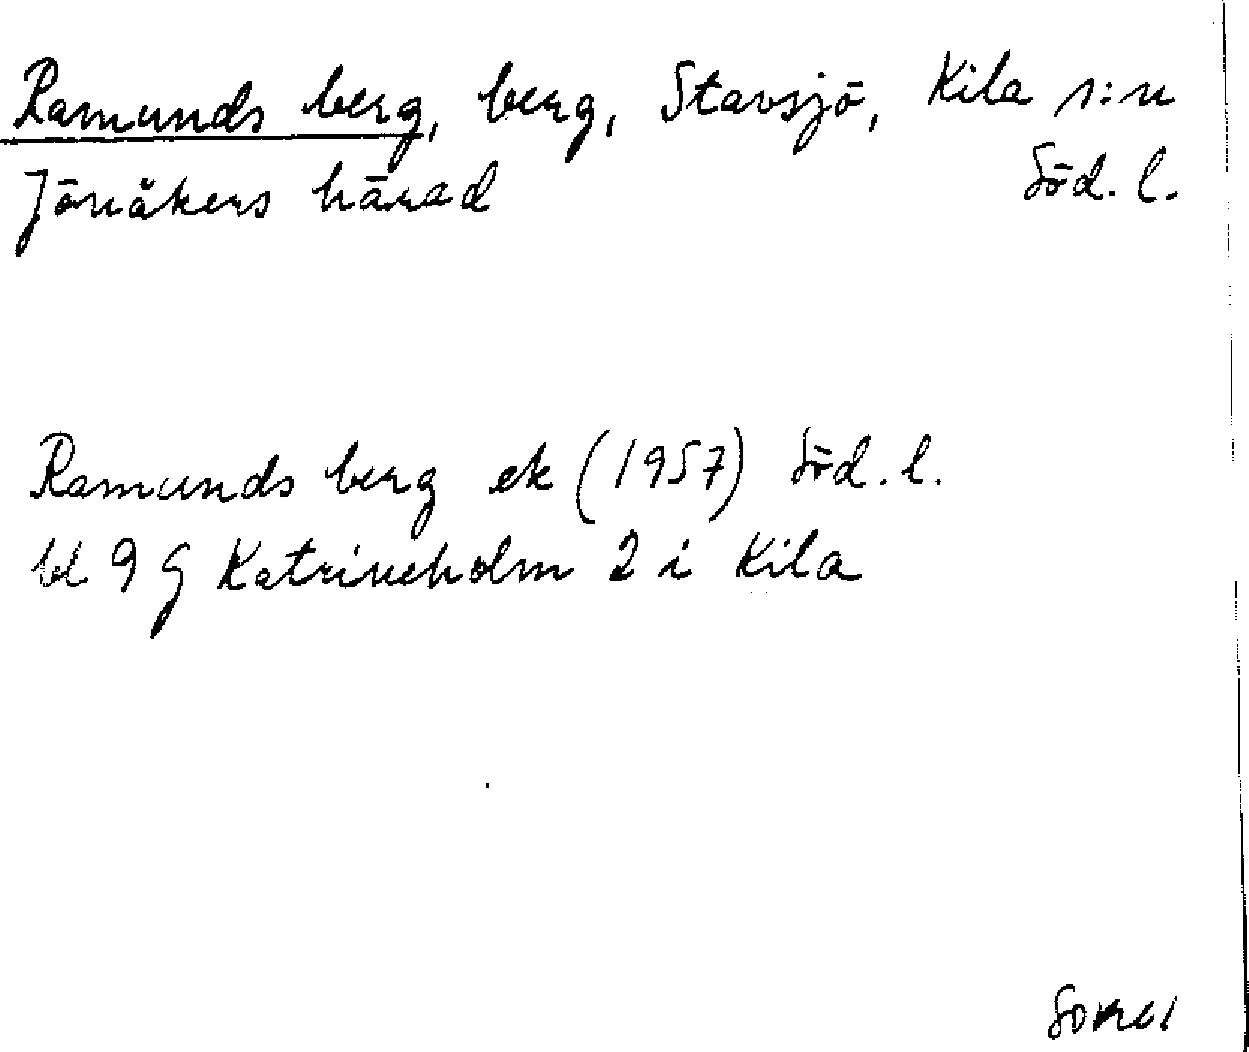 Ramunds berg, berg, Stavsjö, Kila s:n
Jönåkers härad Söd. l.
Ramunds berg ek (1957) Söd. l.
bl 9 G Katrineholm 2 i Kila